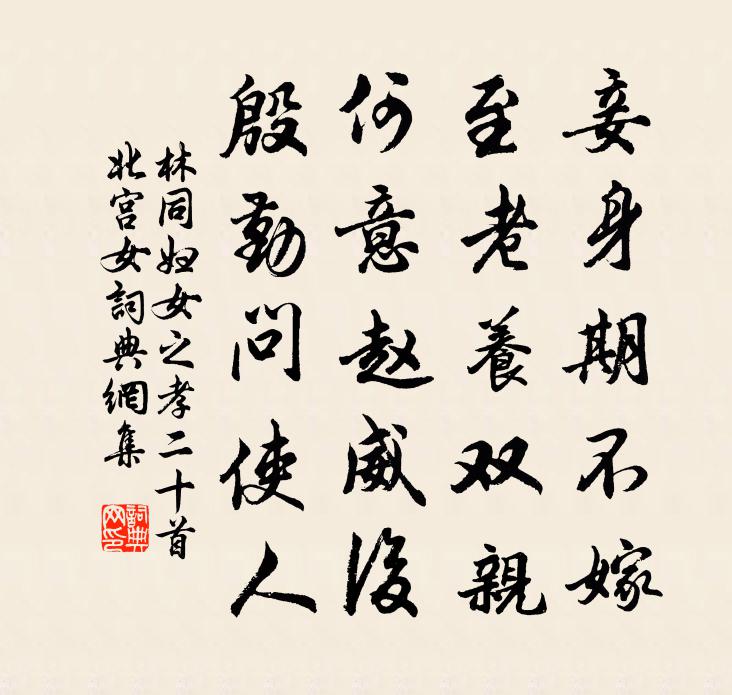 妾身期不嫁
至老養双親
何意赵威後
殷勤問使人
林同妇女之孝二十首
北宫女詞典網集
詞典网印